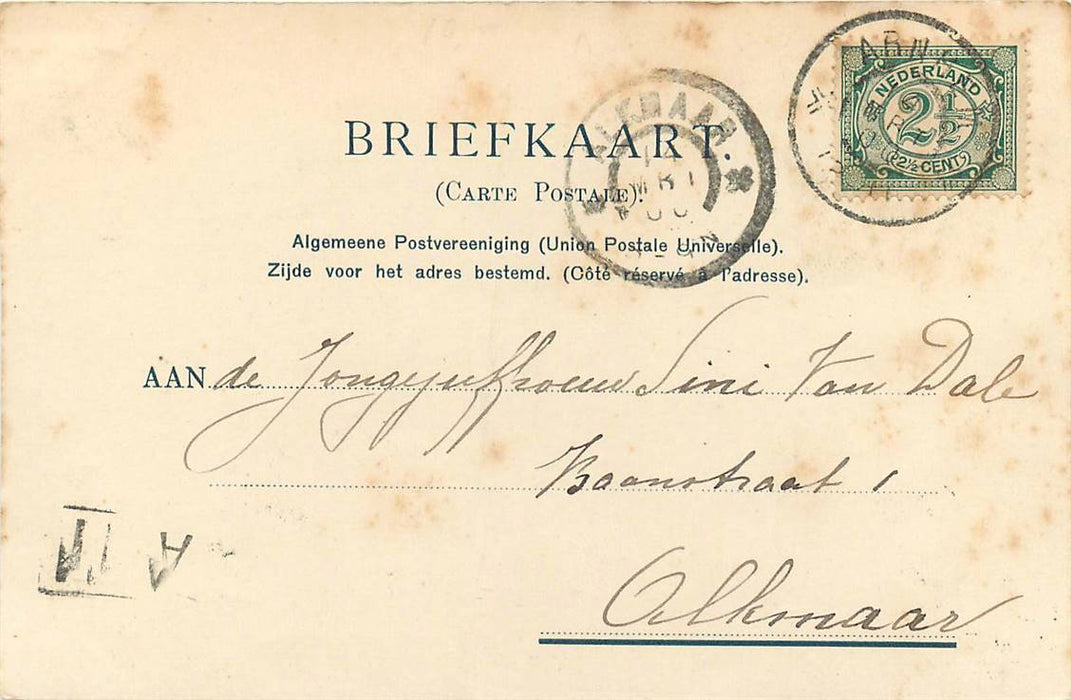 BRIEFKAART.
(CARTE POSTALE).
Algemeene Postvereeniging (Union Postale Universelle).
Zijde voor het adres bestemd. (Côté réservé à l'adresse).
ALKMAAR
NEDERLAND
2½
(2½ CENT)
AAN de Jongejuffrouw Sini Van Dale
Baanstraat 1
Alkmaar